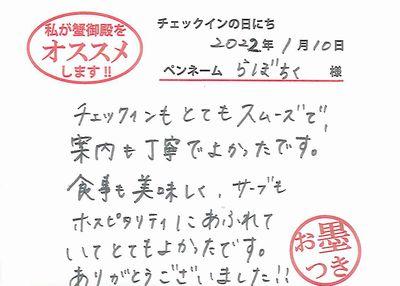 私が蟹御殿を
オススメ
します!!
チェックインの日にち
2022年1月10日
ペンネーム らぼちく 様
チェックインもとてもスムーズで、
案内も丁寧でよかったです。
食事も美味しく、サーブも
ホスピタリティにあふれて
いてとてもよかったです。
ありがとうございました!!
お墨
つき